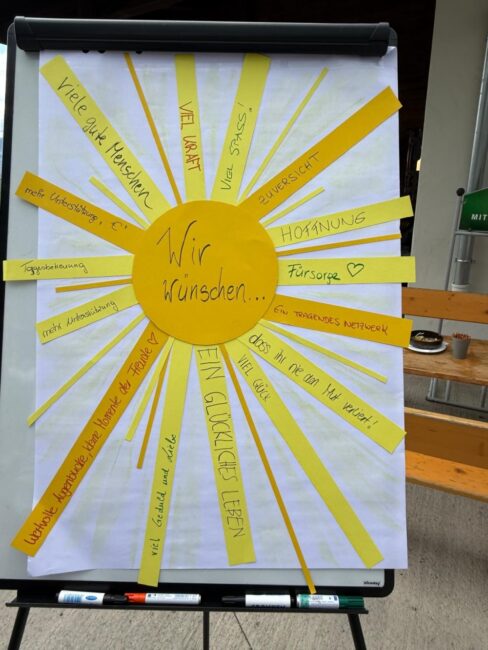 Wir
wünschen...
Viele gute Menschen
VIEL KRAFT
VIEL SPASS!
ZUVERSICHT
HOFFNUNG
Fürsorge ♡
EIN TRAGENDES NETZWERK
dass ihr nie den Mut verliert!
VIEL GLÜCK
EIN GLÜCKLICHES LEBEN
viel Geduld und Liebe
Wertvolle Augenblicke, kleine Momente der Freude ♡
mehr Unterstützung
Tagesbetreuung
mehr Unterstützung, €'
MIT